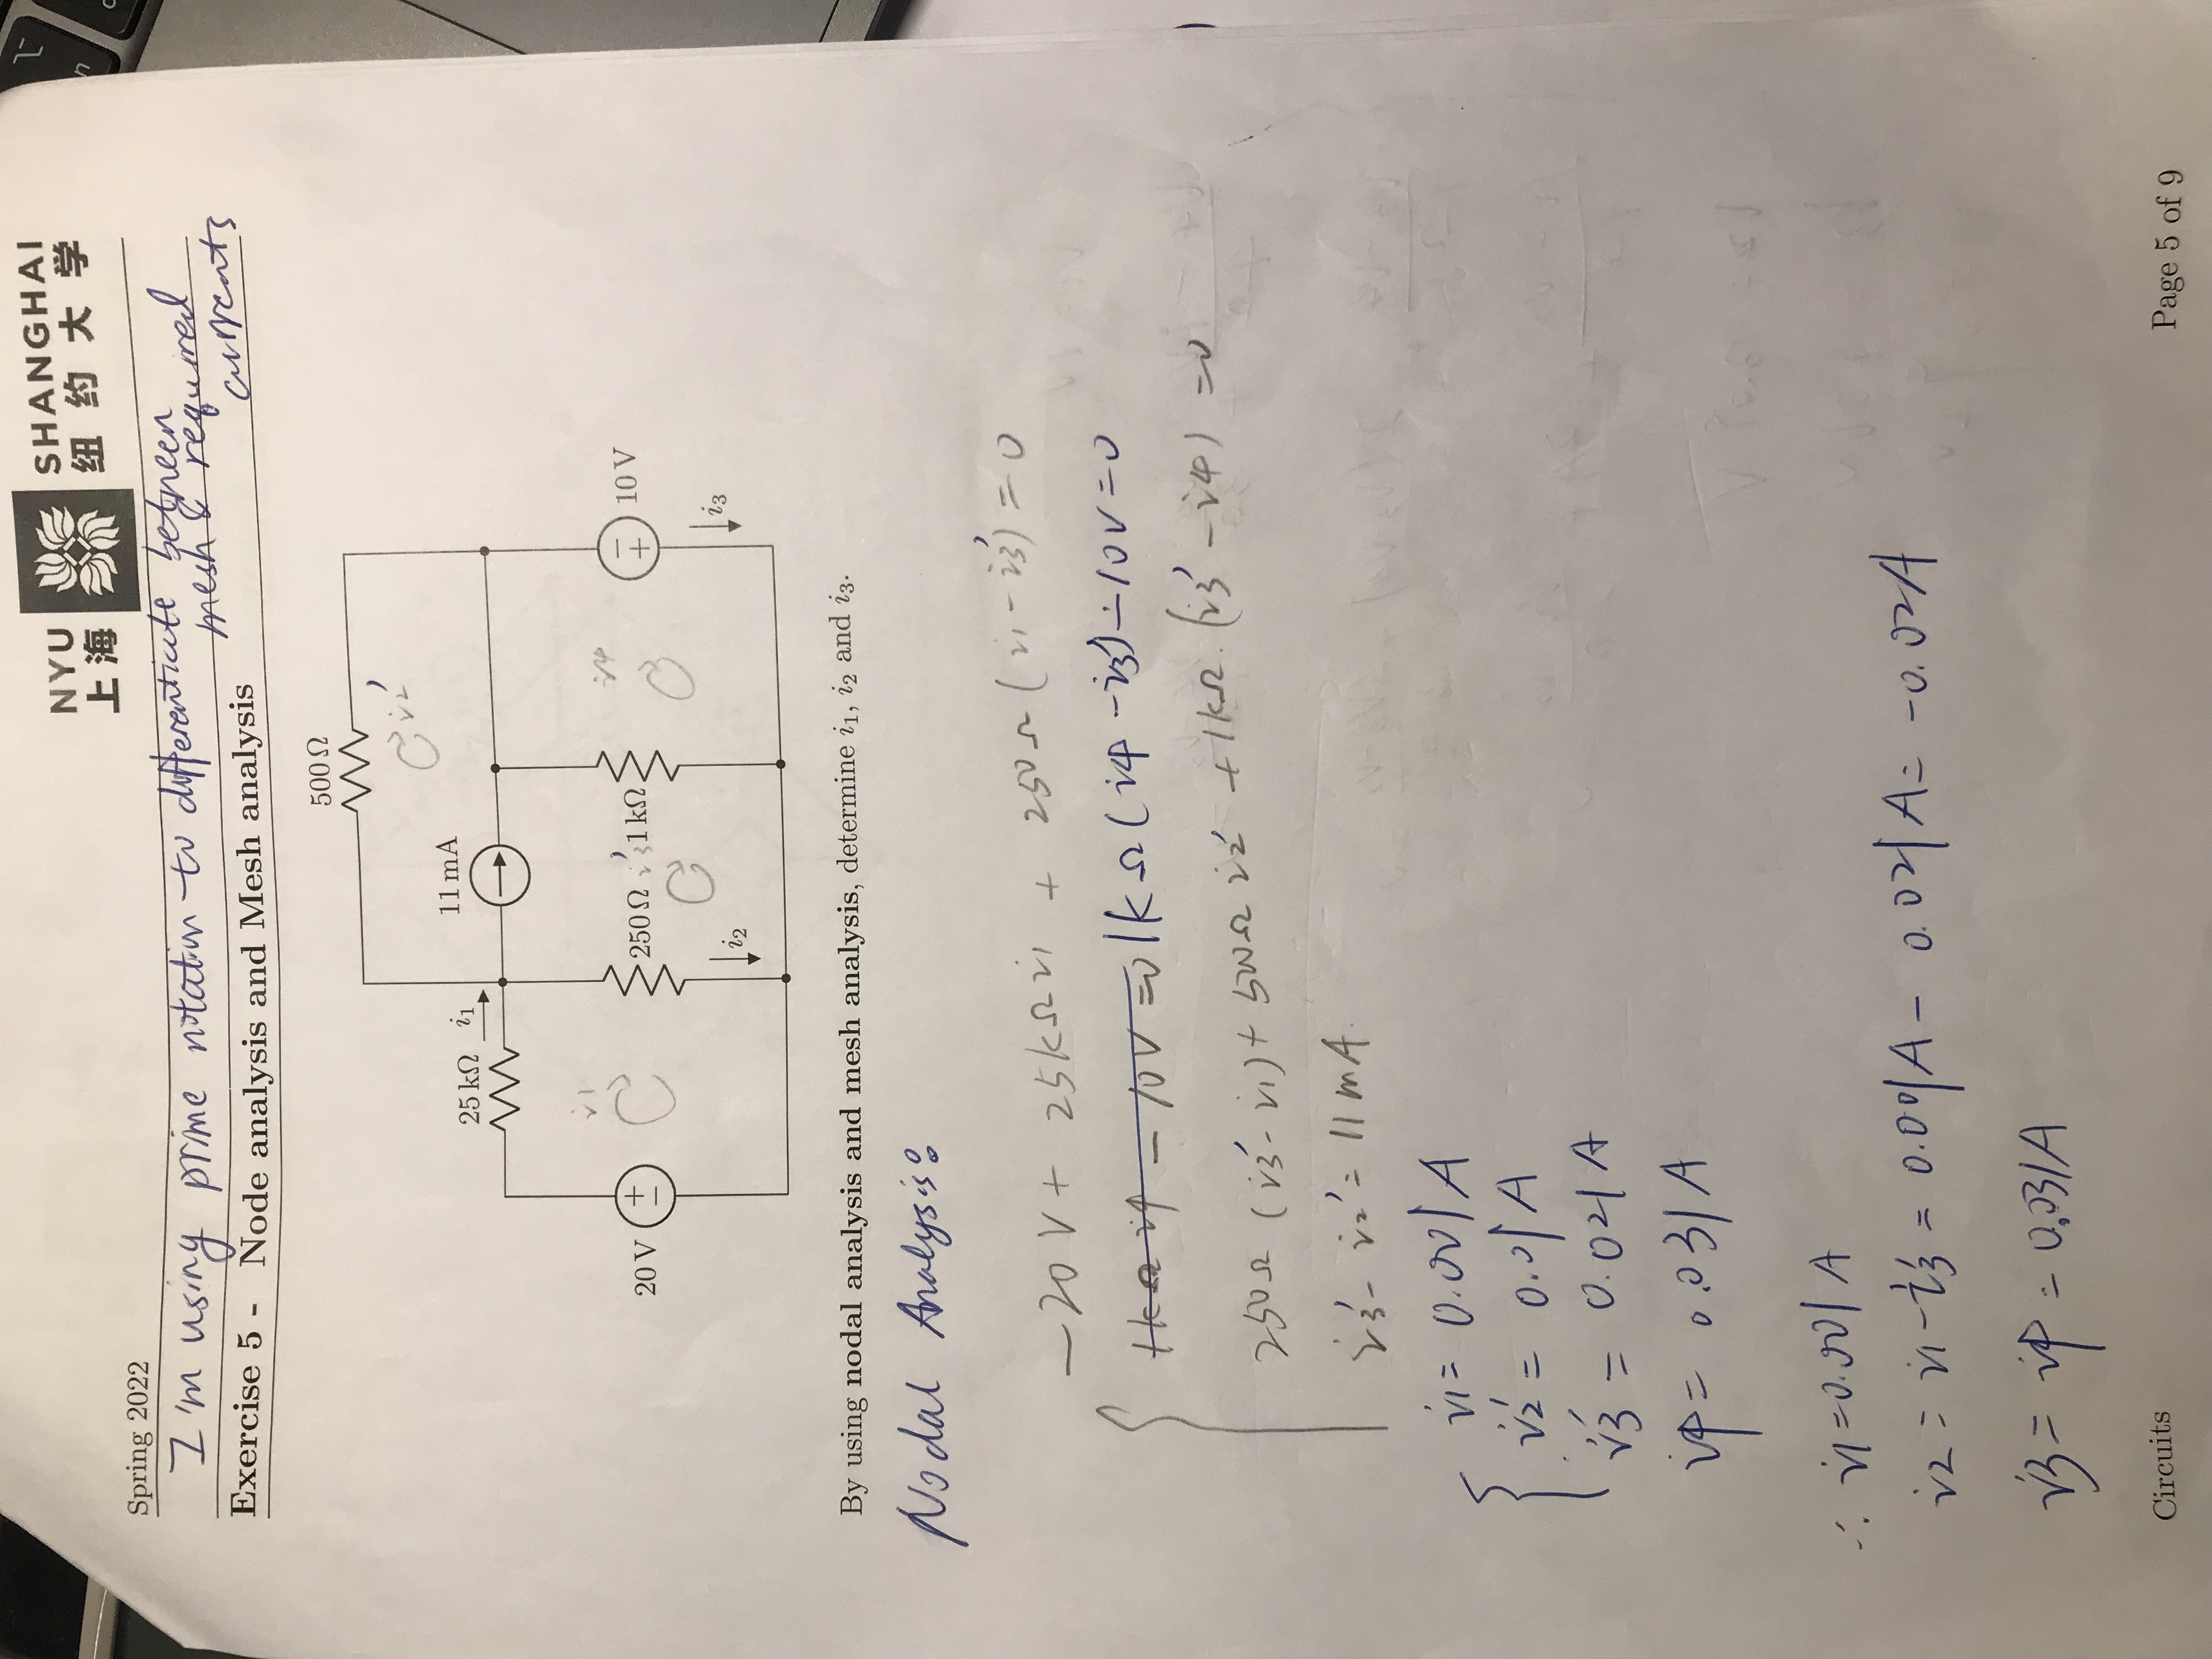 NYU SHANGHAI
上海 纽约大学
Spring 2022
I'm using prime notation to differenticate between
mesh & required
currents
Exercise 5 - Node analysis and Mesh analysis
500 Ω
i2'
11 mA
25 kΩ i1
i1
i4
20 V + − 250 Ω i3' 1 kΩ − + 10 V
i2
i3
By using nodal analysis and mesh analysis, determine i1, i2 and i3.
Nodal Analysis:
−20V + 25kΩ i1 + 250Ω (i1 − i3') = 0
1kΩ i4 − 10V = 0 1kΩ (i4 − i3') − 10V = 0
250Ω (i3' − i1) + 500Ω i2' + 1kΩ. (i3' − i4) = 0
i3' − i2' = 11 mA.
i1 = 0.001 A
i2' = 0.01 A
i3' = 0.021 A
i4 = 0.031 A
∴ i1 = 0.001 A
i2 = i1 − i3' = 0.001A − 0.021A = −0.02A
i3 = i4 = 0.031A
Circuits Page 5 of 9